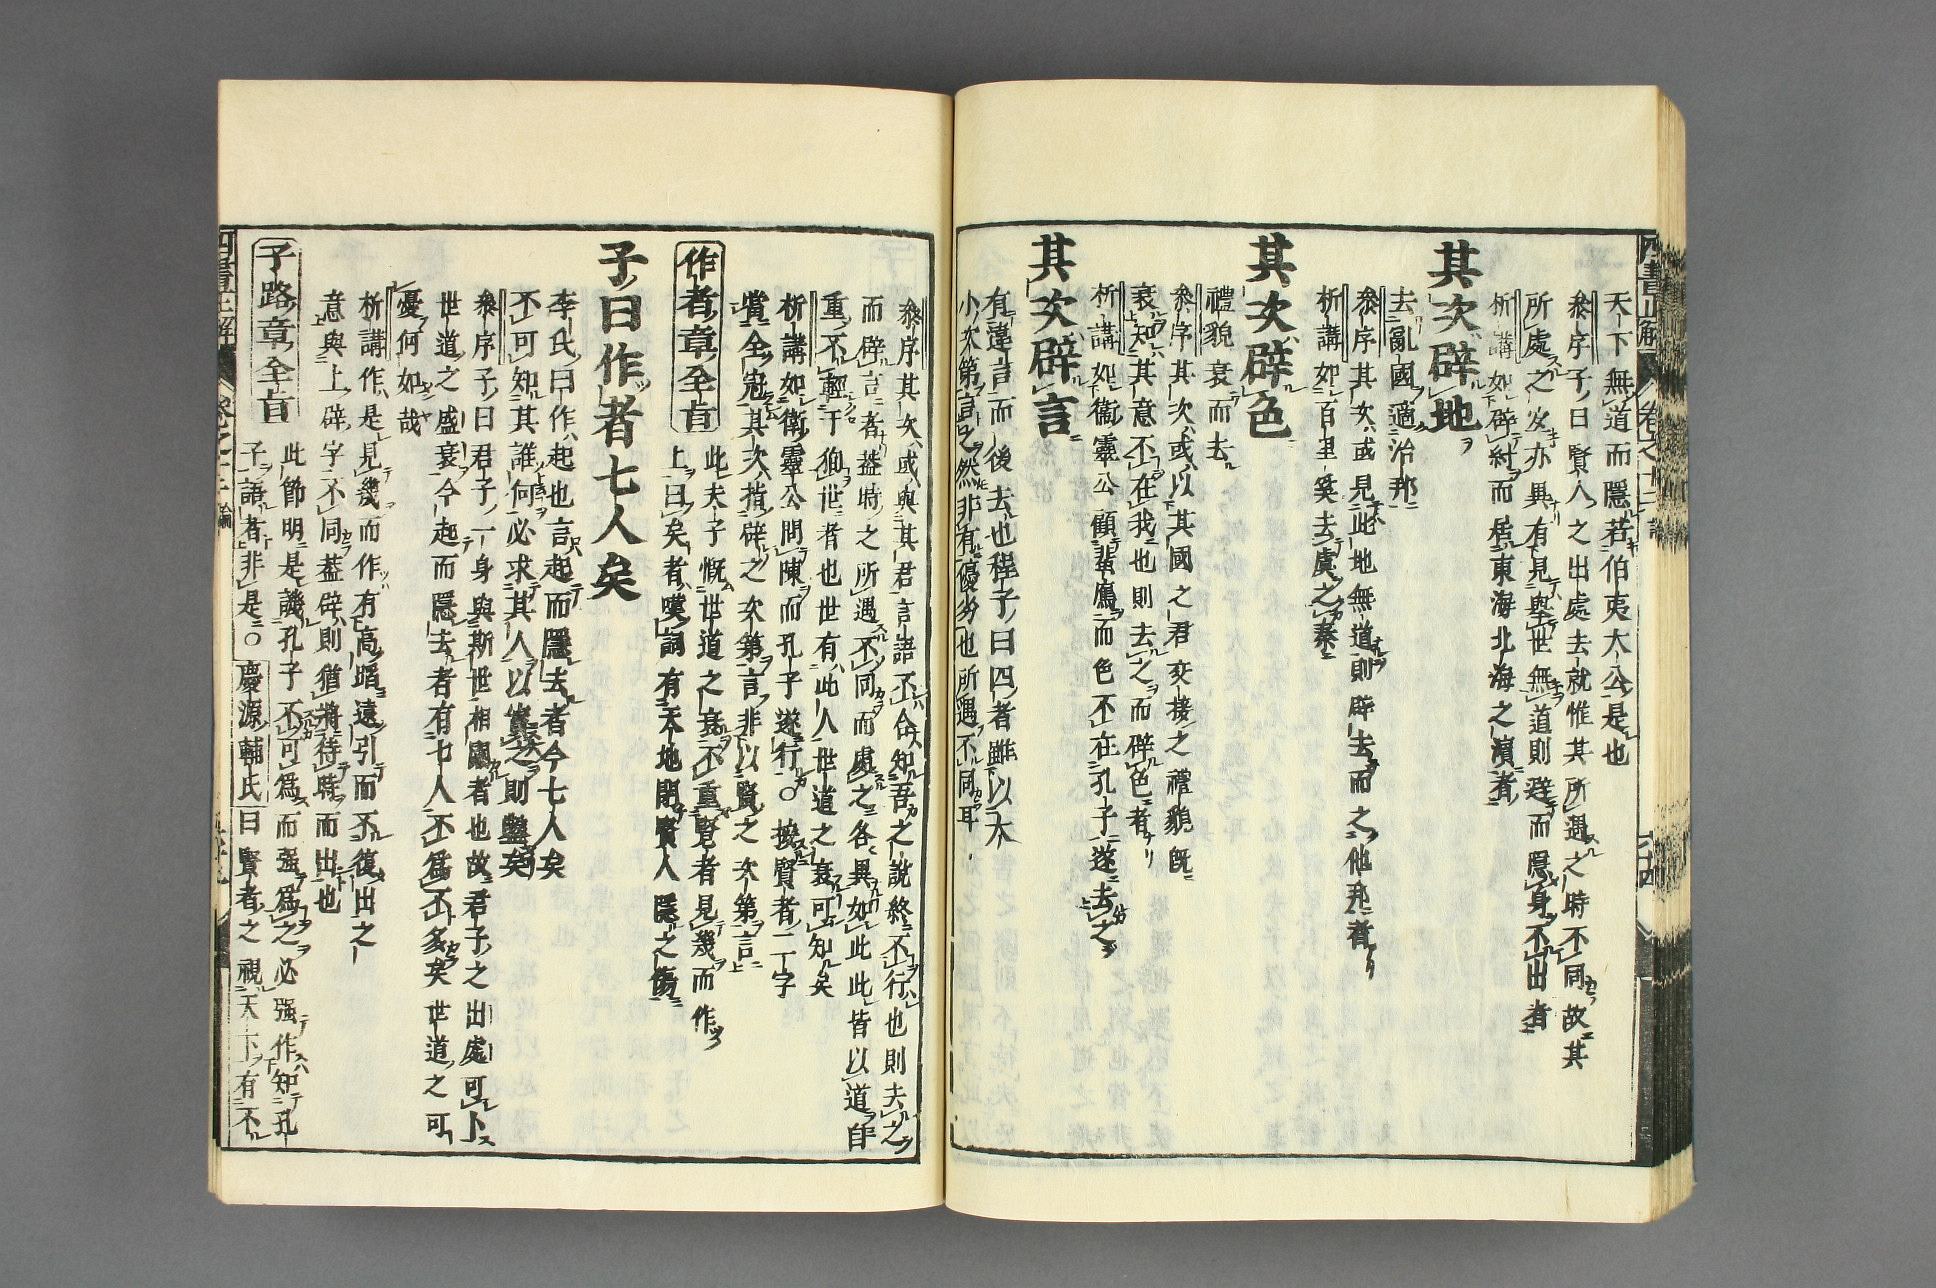 天下無道而隱若伯夷太公是也
參序子曰賢人之出處去就惟其所遇之時不同故其
所處之次亦異有見擧世無道則避而隱身不出者
析講如辟紂而居東海北海之濱者
其次辟地
去亂國適治邦
參序其次或見此地無道則辟去而之他邦者
析講如百里奚去虞之秦
其次辟色
禮貌衰而去
參序其次或以其國之君交接之禮貌旣
衰知其意不在我也則去之而辟色者
析講如衞靈公顧蜚鴈而色不在孔子遂去之
其次辟言
有違言而後去也程子曰四者雖以大
小次第言之然非有優劣也所遇不同耳
參序其次或與其君言語不合知吾之說終不行也則去之
而辟言者蓋時之所遇不同而處之各異如此此皆以道自
重不輕于狥世者也世有此人世道之衰可知矣
析講如衞靈公問陳而孔子遂行○按賢者二字
當全冠其次指辟之次第言非以賢之次第言
作者章全旨
此夫子慨世道之衰不重賢者見幾而作
上曰矣者嘆詞有天地閉賢人隱之傷
子曰作者七人矣
李氏曰作起也言起而隱去者今七人矣
不可知其誰何必求其人以實之則鑿矣
參序子曰君子一身與斯世相關者也故君子之出處可卜
世道之盛衰今起而隱去者有七人不爲不多矣世道之可
憂何如哉
析講作是見幾而作有高蹈遠引而不復出之
意與上辟字不同蓋辟則猶將待時而出也
子路章全旨
此節明是譏孔子不可爲而强爲之必强作知孔
子語者非是○慶源輔氏曰賢者之視天下有不